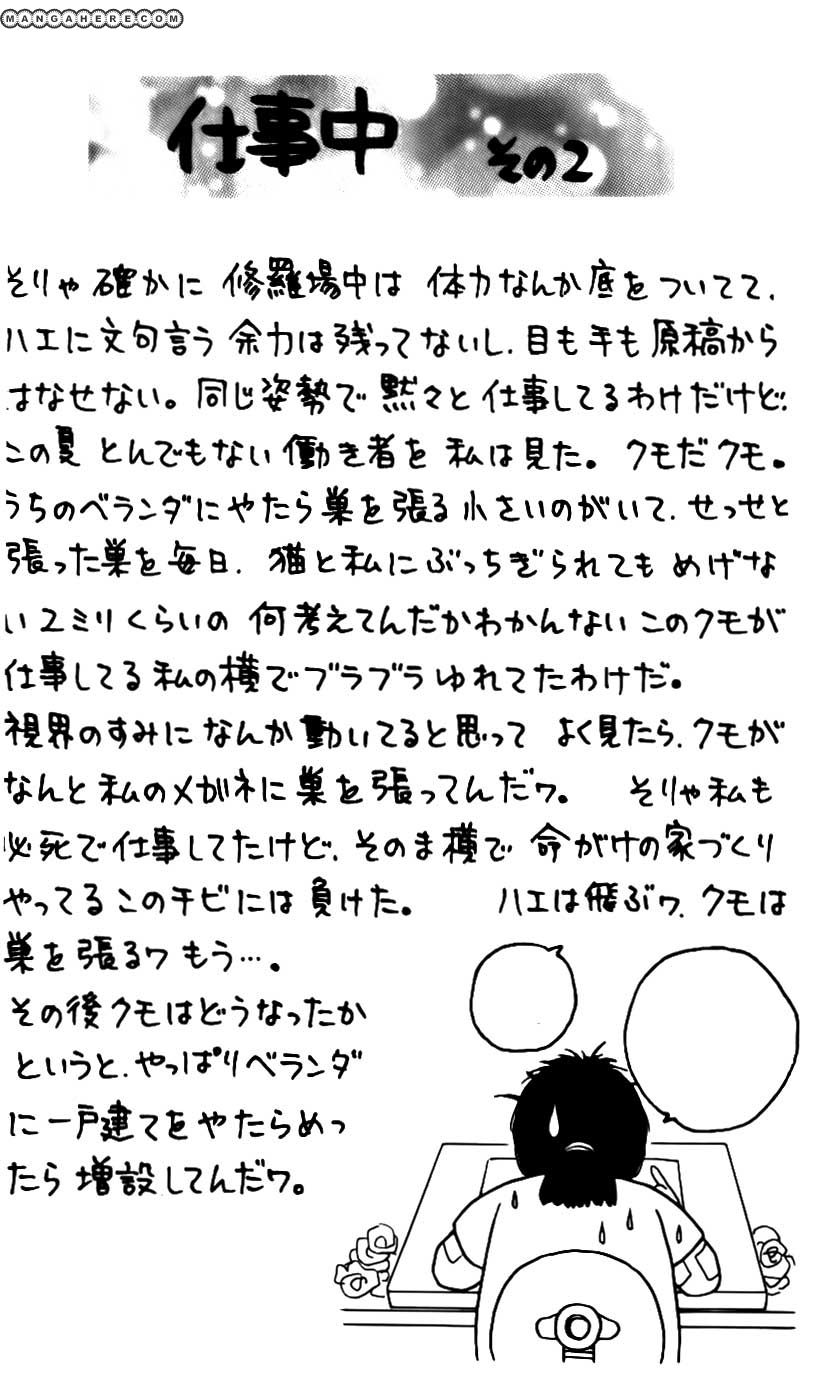 MANGAHERE.COM
仕事中 その2
そりゃ確かに 修羅場中は 体力なんか底をついてて.
ハエに文句言う余力は残ってないし.目も手も原稿から
はなせない。同じ姿勢で黙々と仕事してるわけだけど.
この夏 とんでもない働き者を 私は見た。クモだクモ。
うちのベランダにやたら巣を張る小さいのがいて.せっせと
張った巣を毎日.猫と私にぶっちぎられても めげな
い2ミリくらいの 何考えてんだかわかんないこのクモが
仕事してる私の横でブラブラゆれてたわけだ。
視界のすみになんか動いてると思って よく見たら.クモが
なんと私のメガネに巣を張ってんだワ。 そりゃ私も
必死で仕事してたけど.そのま横で命がけの家づくり
やってるこのチビには負けた。 ハエは飛ぶワ.クモは
巣を張るワもう…。
その後クモはどうなったか
というと.やっぱりベランダ
に一戸建てをやたらめっ
たら増設してんだワ。